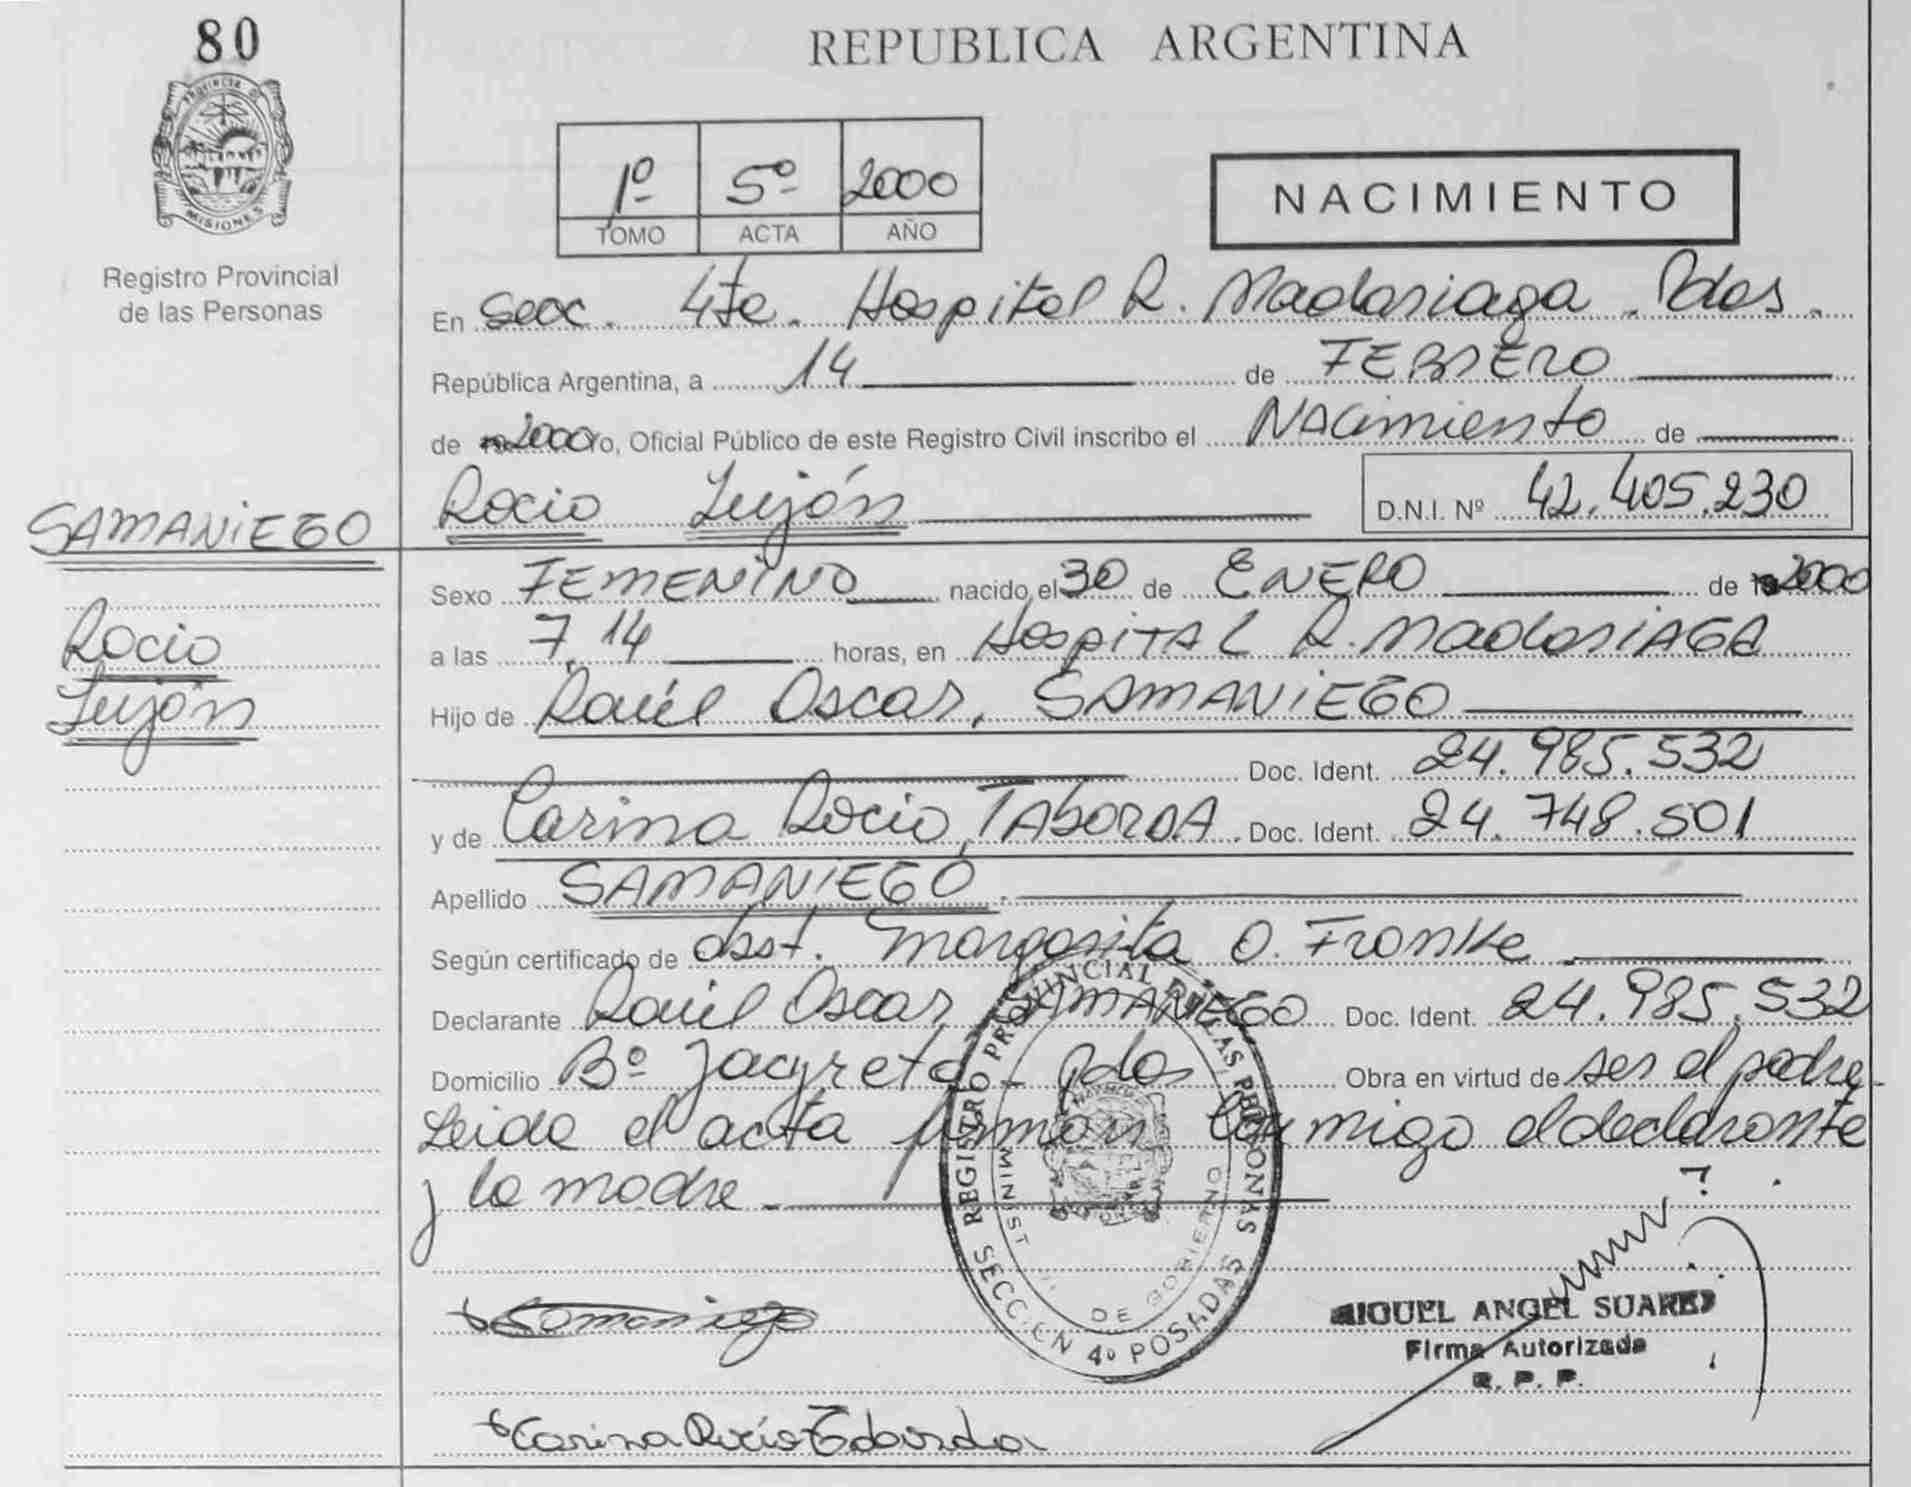 80
PROVINCIA DE
MISIONES
Registro Provincial
de las Personas
REPUBLICA ARGENTINA
1º 5º 2000
TOMO ACTA AÑO
NACIMIENTO
En Secc. 4ta. Hospital R. Madariaga. Pdas.
República Argentina, a 14 de FEBRERO
de 2000 yo, Oficial Público de este Registro Civil inscribo el NAcimiento de
SAMANiEGO
Rocio Luján D.N.I. Nº 42.405.230
Sexo FEMENiNO nacido el 30 de ENERO de 2000
Rocio
a las 7,14 horas, en HospiTAL R. MadariAGA
Luján
Hijo de Raúl Oscar, SAMANiEGO
Doc. Ident. 24.985.532
y de Carina Rocio, TABORDA Doc. Ident. 24.748.501
Apellido SAMANiEGO
Según certificado de obst. Margarita O. Franke
Declarante Raúl Oscar SAMANiEGO Doc. Ident. 24.985.532
Domicilio Bº Yacyreta - Pdas Obra en virtud de ser el padre_
Leida el acta firman conmigo el declarante
y la madre.
REGISTRO PROVINCIAL DE LAS PERSONAS
SECCION 4º POSADAS
DE GOBIERNO
Samaniego
MIGUEL ANGEL SUAREZ
Firma Autorizada
R. P. P.
Carina Rocío Taborda